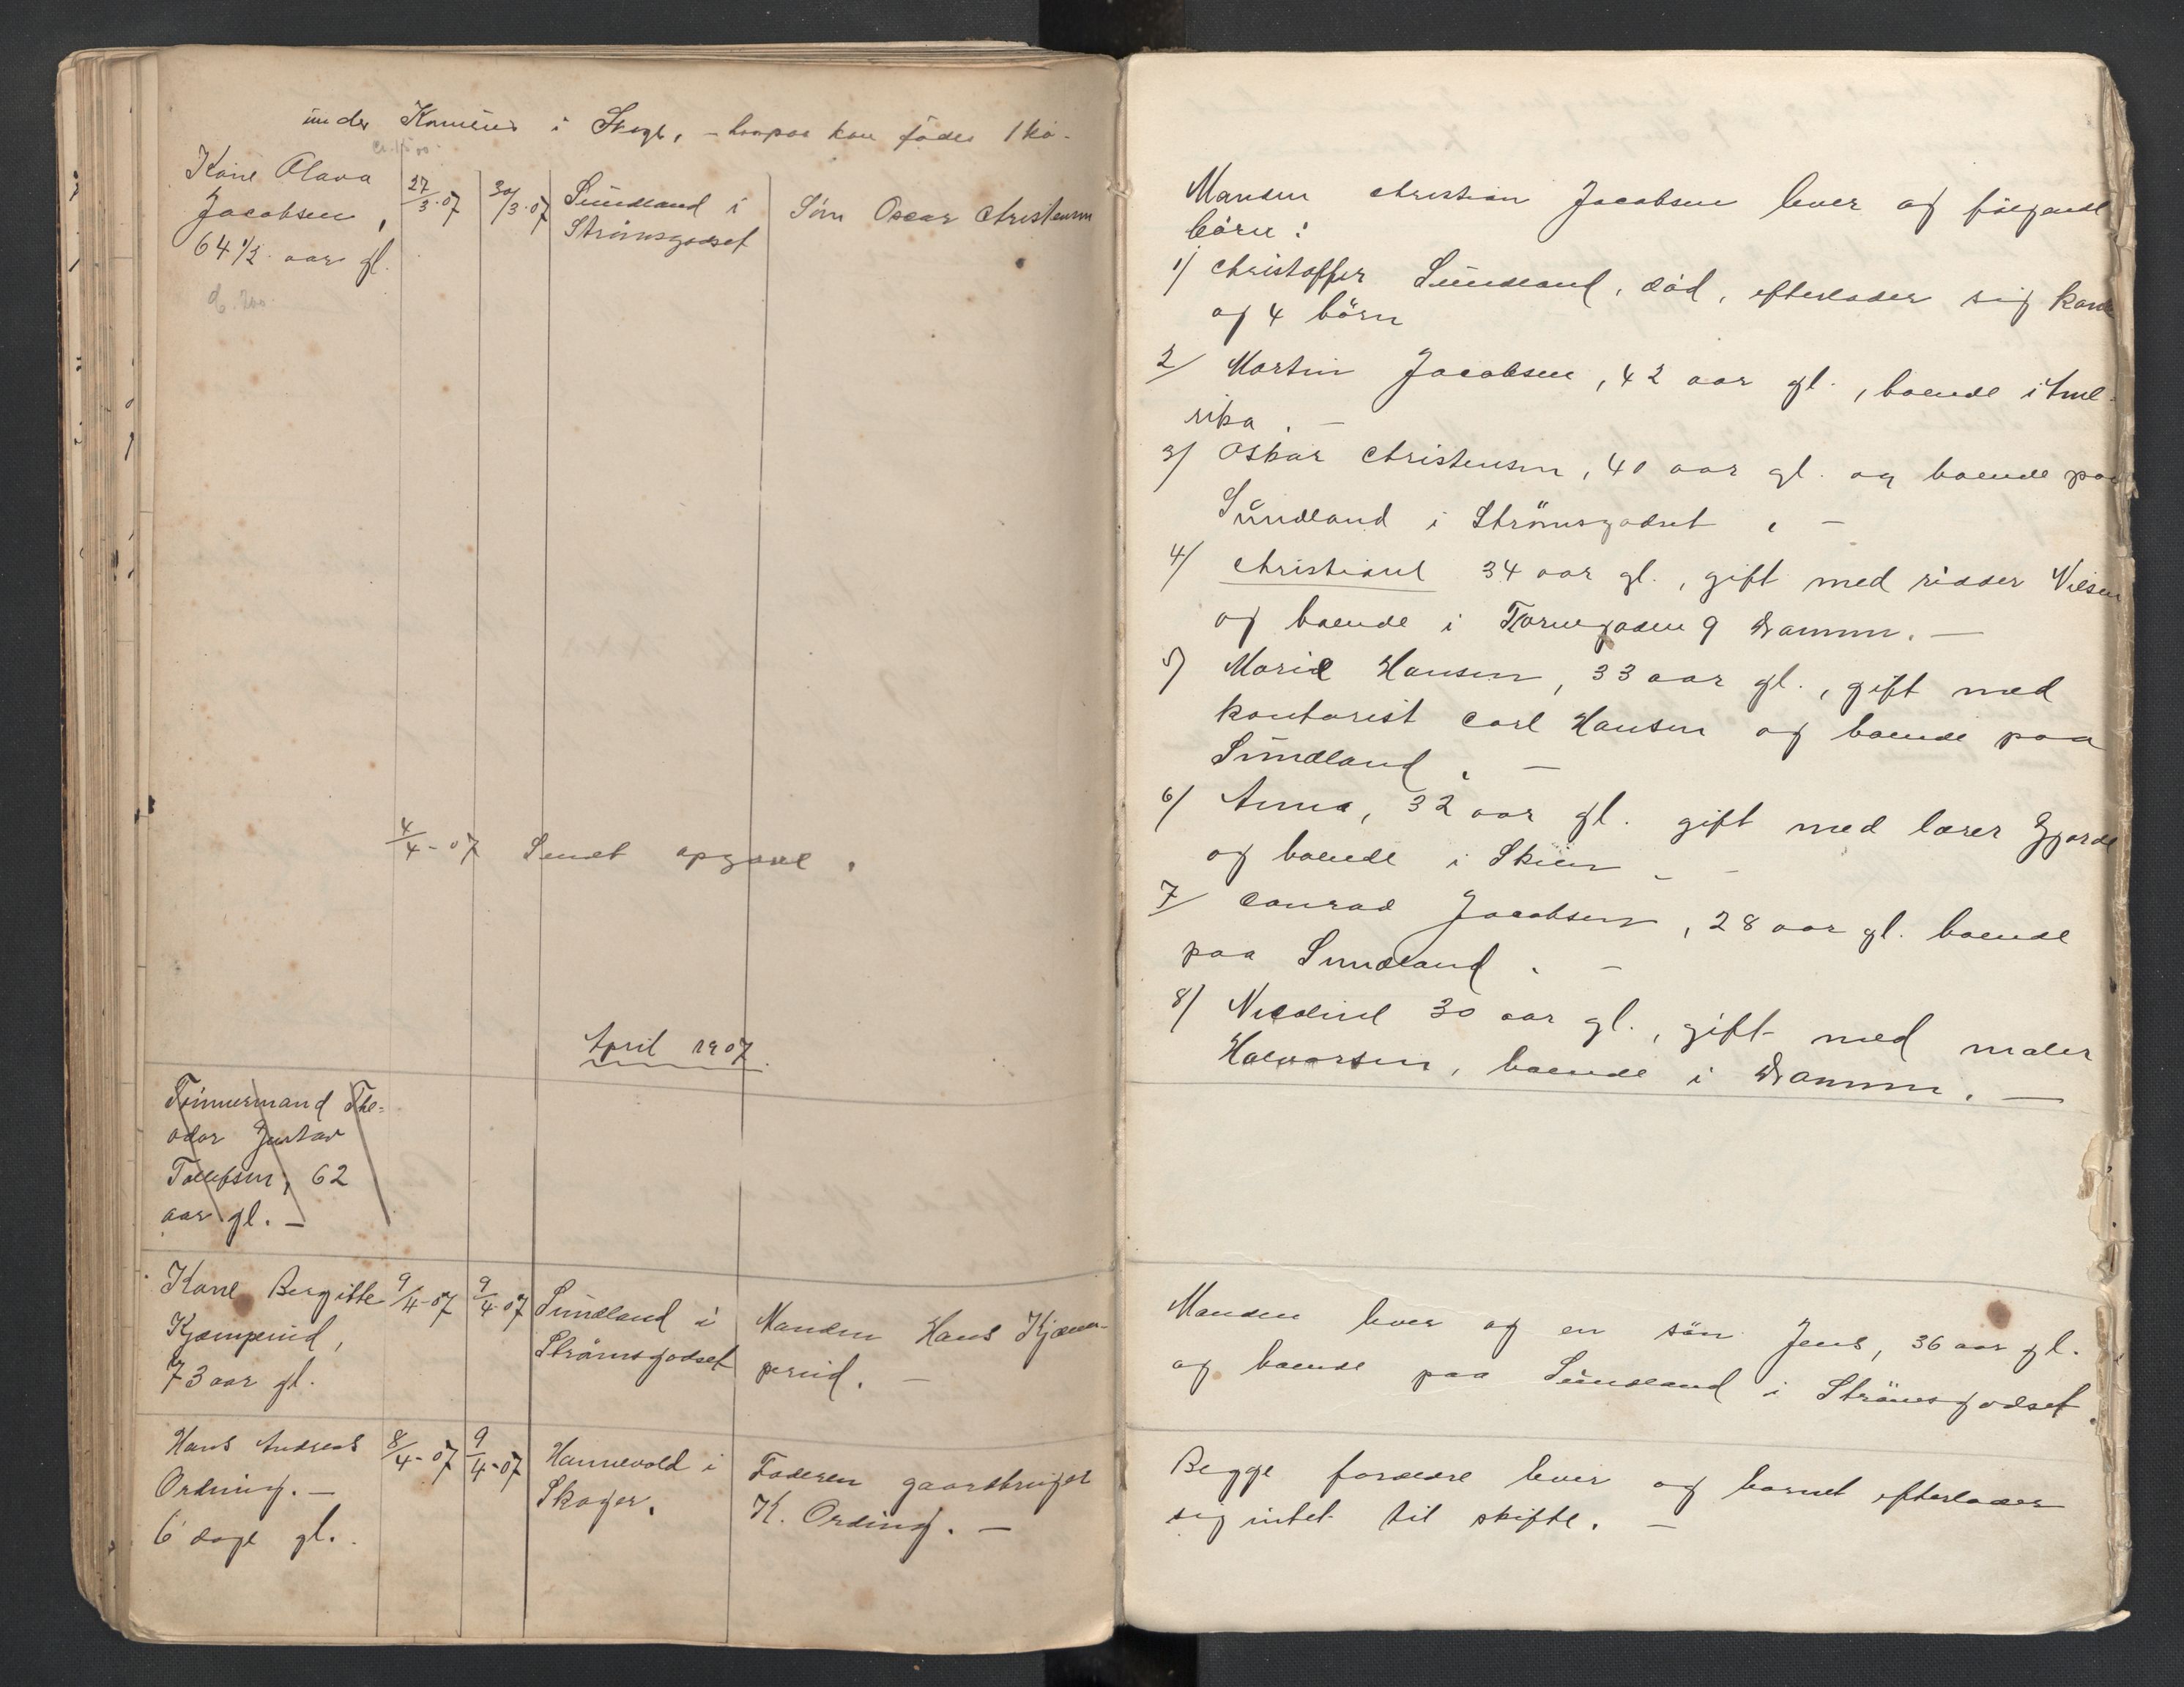 under Konnerud i Skoger, - hvorpaa kan födes 1 ko -
Kone Olava
Jacobsen,
64 1/2 aar gl.
27/3-07
30/3-07
Sundland i
Strömsgodset
Søn Oscar Christensen
4/4-07 Sendt opgave.
April 1907.
Tømmermand The=
odor Gustav
Tollefsen, 62
aar gl. -
Kone Bergitte
Kjæmperud,
73 aar gl.
9/4-07
9/4-07
Sundland i
Strömsgodset
Manden Hans Kjæm-
perud. -
Hans Andreas
Ording. -
6 dage gl.
8/4-07
9/4-07
Hannevold i
Skoger.
Faderen gaardbruger
K. Ording. -
Manden Christian Jacobsen lever og fölgende
börn:
1) Christoffer Sundland, död, efterlader sig kone
og 4 börn
2/ Martin Jacobsen, 42 aar gl., boende i Ame-
rika. -
3) Oskar Christensen, 40 aar gl. og boende paa
Sundland i Strömsgodset. -
4) Christiane 34 aar gl., gift med Nilsen
og boende i Tornegaden 9 Drammen. -
5) Marie Hansen, 33 aar gl., gift med
kontorist Carl Hansen og boende paa
Sundland. -
6) Anna, 32 aar gl. gift med lærer
og boende i Skien - -
7/ Conrad Jacobsen, 28 aar gl. boende
paa Sundland. -
8) Nicoline 30 aar gl., gift med maler
Halvorsen, boende i Drammen. -
Manden lever og en sön Jens, 36 aar gl.
og boende paa Sundland i Strömsgodset.
Begge forældre lever og barnet efterlader
sig intet til skifte. -